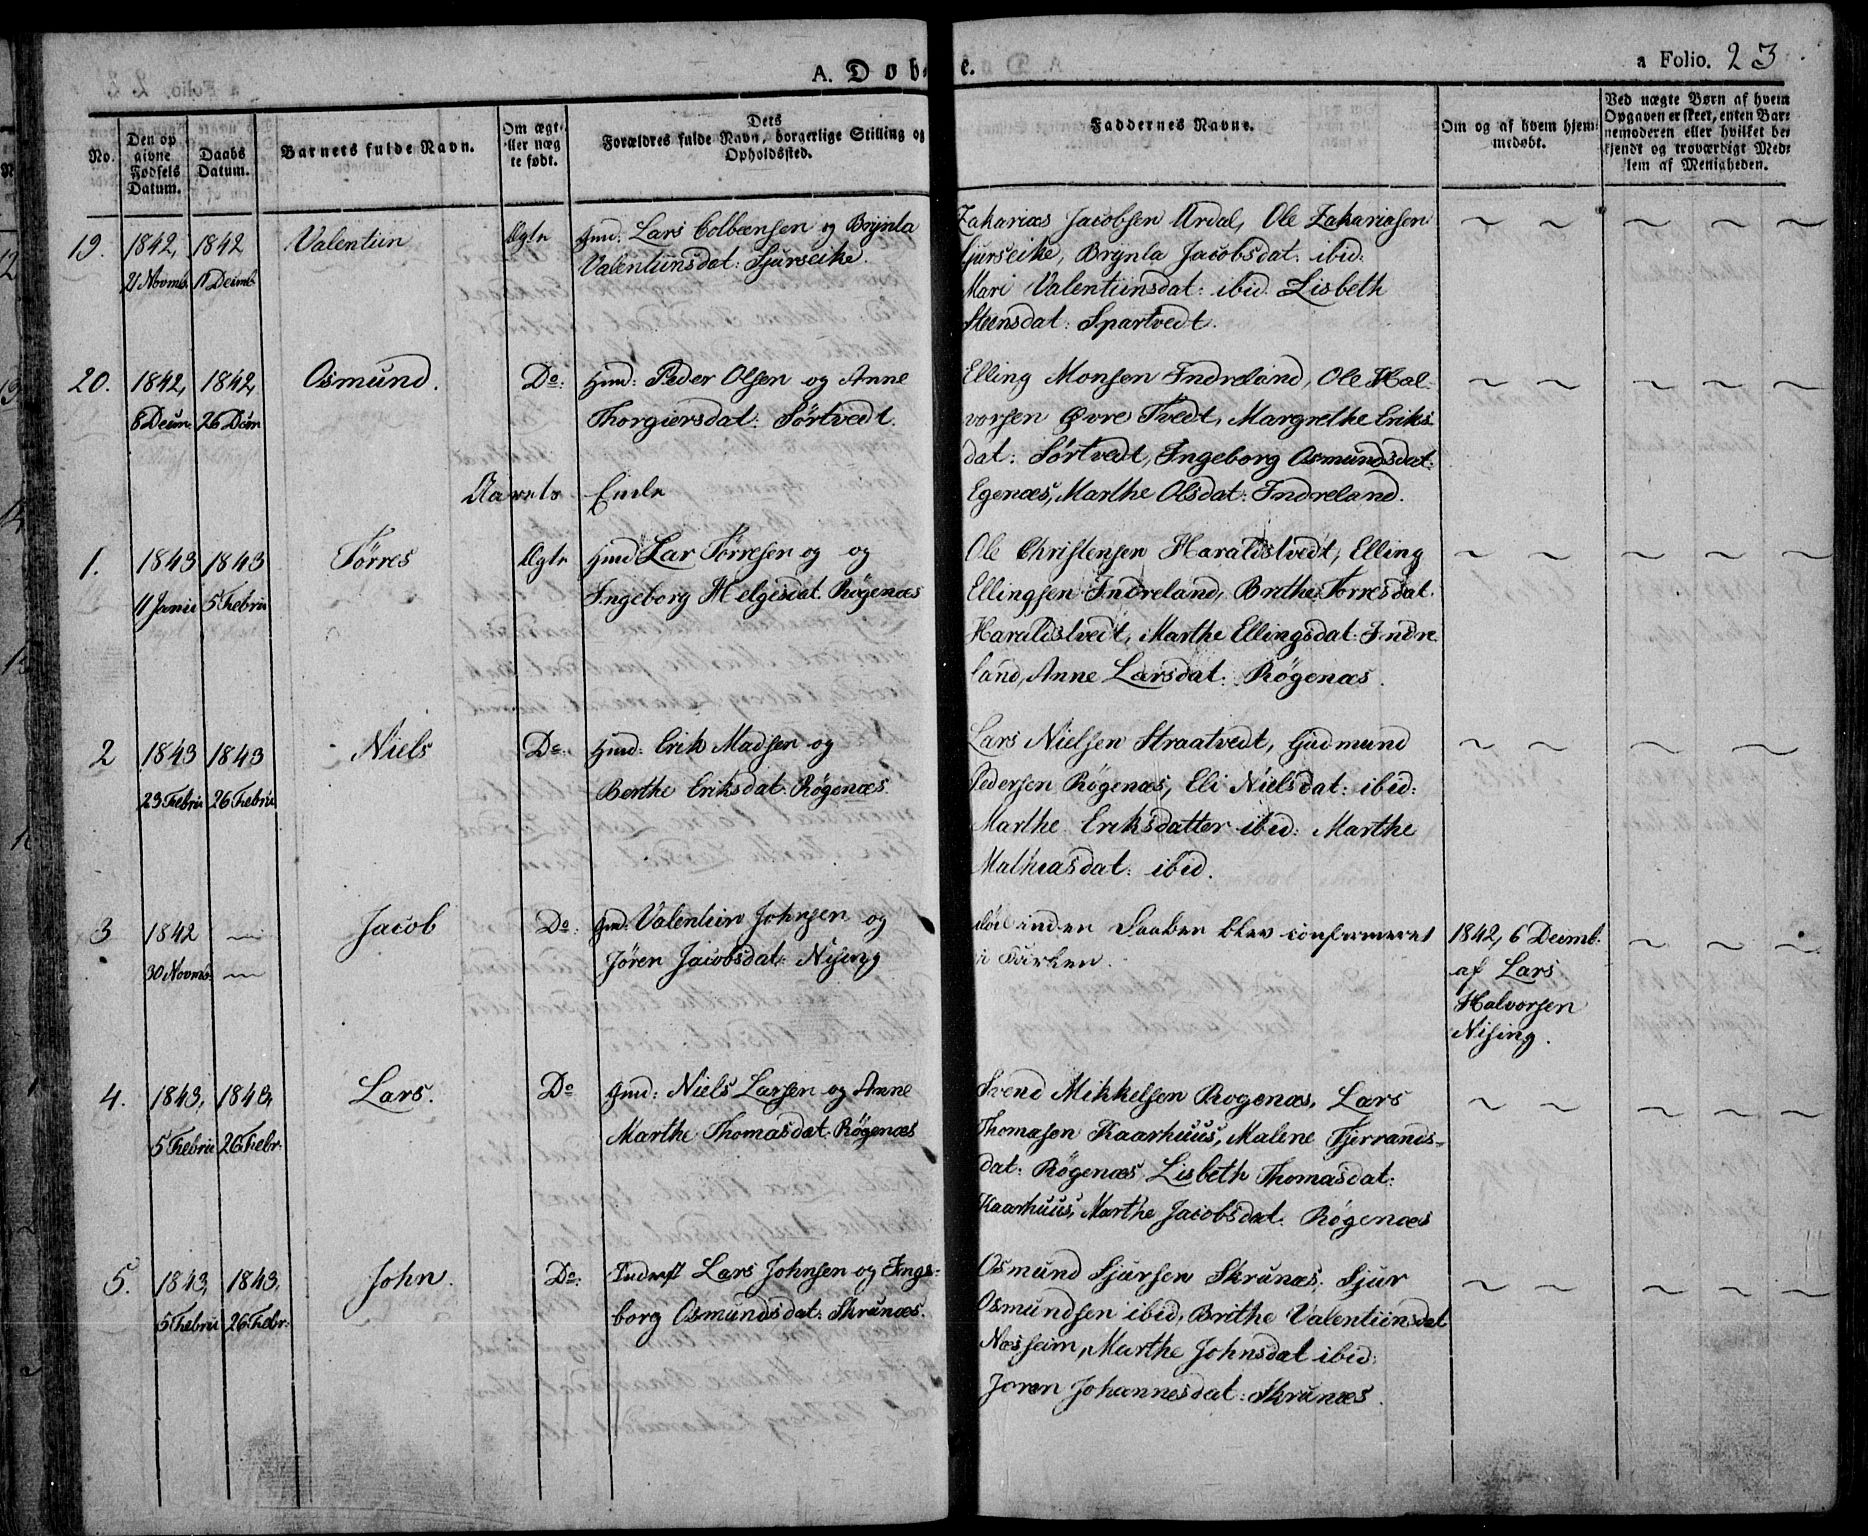 A. Døbte.
a Folio. 23
No.
Den op
givne
Fødsels
Datum.
Daabs
Datum.
Barnets fulde Navn.
Om ægt-
eller næg
te født.
Dets
Forældres fulde Navn, borgerlige Stilling og
Opholdssted.
Faddernes Navne.
Om og af hvem hjem-
medøbt.
Ved uægte Børn af hvem
Opgaven er skeet, enten Bar-
nemoderen eller hvilket be-
kjendt og troværdigt Med-
lem af Menigheden.
19. 1842, 1842 Valentiin Ægte Gmd: Lars Colbensen og Brynla
21 Novmb. 11 Decmb Valentiinsdat: Sjurseike.
Zakarias Jacobsen Urdal, Ole Zakariasen
Sjurseike, Brynla Jacobsdat: ibid:
Mari Valentiinsdat: ibid. Lisbeth
Steensdat: Spartvedt.
20. 1842, 1842, Osmund. Do: Gmd: Peder Olsen og Anne
8 Decm. 26 Decm Thorgiersdat: Sørtvedt.
Elling Monsen Indreland, Ole Hal-
vorsen Øvre Tvedt, Margrethe Eriks-
dat: Sørtvedt, Ingeborg Osmundsdat:
Egenæs, Marthe Olsdat: Indreland.
Aarets Ende
1. 1843 1843 Tørres Ægte Gmd Lar Tørresen og og
11 Janii 5 Febrii Ingeborg Helgesdat. Røgenæs
Ole Christensen Haraldstvedt, Elling
Ellingsen Indreland, Brithe Torresdat.
Haraldstvedt, Marthe Ellingsdat: Indre
land, Anne Larsdat: Røgenæs.
2 1843 1843 Niels Do: Gmd: Erik Madsen og
23 Febrii 26 Febrii Berthe Eriksdat: Røgenæs.
Lars Nielsen Straatvedt, Gudmund
Pedersen Røgenæs, Eli Nielsdat: ibid:
Marthe Eriksdatter ibid: Marthe
Mathiasdat: ibid.
3 1842 Jacob Do: Gmd: Valentiin Johnsen og
30 Novmb. Jøren Jacobsdat: Nising
død inden Daaben blev confirmeret
i Kirken.
1842, 6 Decmb.
af Lars
Halvorsen
Nising.
4. 1843, 1843, Lars. Do Gmd: Niels Larsen og Anne
5 Febrii 26 Febr. Marthe Thomasdat: Røgenæs
Svend Mikkelsen Rogenæs, Lars
Thomasen Kaarhuus, Malene Tjerrands-
dat: Røgenæs, Lisbeth Thomasdat:
Kaarhuus, Marthe Jacobsdat: Røgenæs
5. 1843, 1843, John. Do: Inderst Lars Johnsen og Inge-
5 Febrii 26 Febr. borg Osmundsdat: Skrunæs.
Osmund Sjursen Skrunæs, Sjur
Osmundsen ibid, Brithe Valentiinsdat
Næsheim, Marthe Johnsdat ibid:
Joren Johannesdat: Skrunæs.